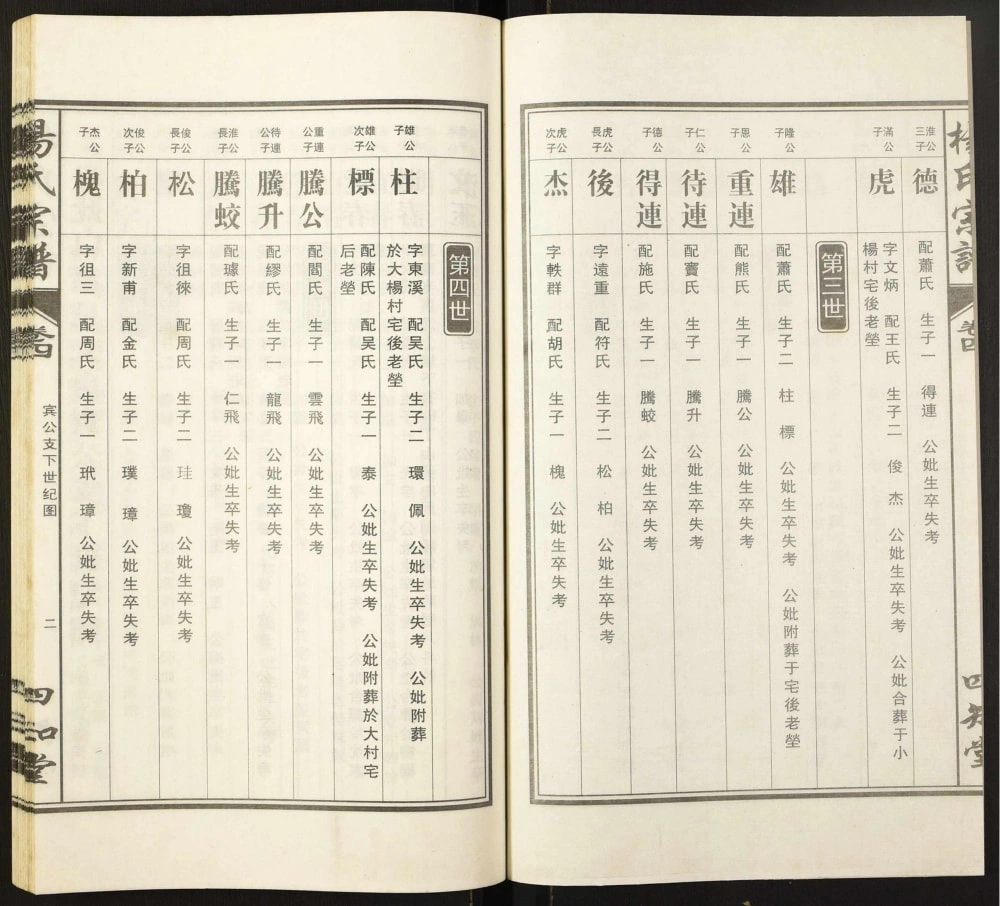 楊氏宗譜
卷四
四知堂
淮公三子
德
配蕭氏 生子一 得連 公妣生卒失考
滿公子
虎
字文炳 配王氏 生子二 俊 杰 公妣生卒失考 公妣合葬于小
楊村宅後老塋
第三世
隆公子
雄
配蕭氏 生子二 柱 標 公妣生卒失考 公妣附葬于宅後老塋
恩公子
重連
配熊氏 生子一 騰公 公妣生卒失考
仁公子
待連
配竇氏 生子一 騰升 公妣生卒失考
德公子
得連
配施氏 生子一 騰蛟 公妣生卒失考
虎公長子
後
字遠重 配符氏 生子二 松 柏 公妣生卒失考
虎公次子
杰
字軼群 配胡氏 生子一 槐 公妣生卒失考
第四世
雄公子
柱
字東溪 配吴氏 生子二 環 佩 公妣生卒失考 公妣附葬
於大楊村宅後老塋
雄公次子
標
配陳氏 配吴氏 生子一 泰 公妣生卒失考 公妣附葬於大村宅
后老塋
重連公子
騰公
配閻氏 生子一 雲飛 公妣生卒失考
待連公子
騰升
配繆氏 生子一 龍飛 公妣生卒失考
淮公長子
騰蛟
配璩氏 生子一 仁飛 公妣生卒失考
俊公長子
松
字徂徠 配周氏 生子二 珪 瓊 公妣生卒失考
俊公次子
柏
字新甫 配金氏 生子二 璞 璋 公妣生卒失考
杰公子
槐
字徂三 配周氏 生子一 玳 璋 公妣生卒失考
楊氏宗譜
卷四
宾公支下世纪图
二
四知堂